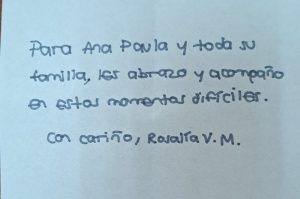 Para Ana Paula y toda su
familia, les abrazo y acompaño
en estos momentos difíciles.
Con cariño, Rosalía V. M.